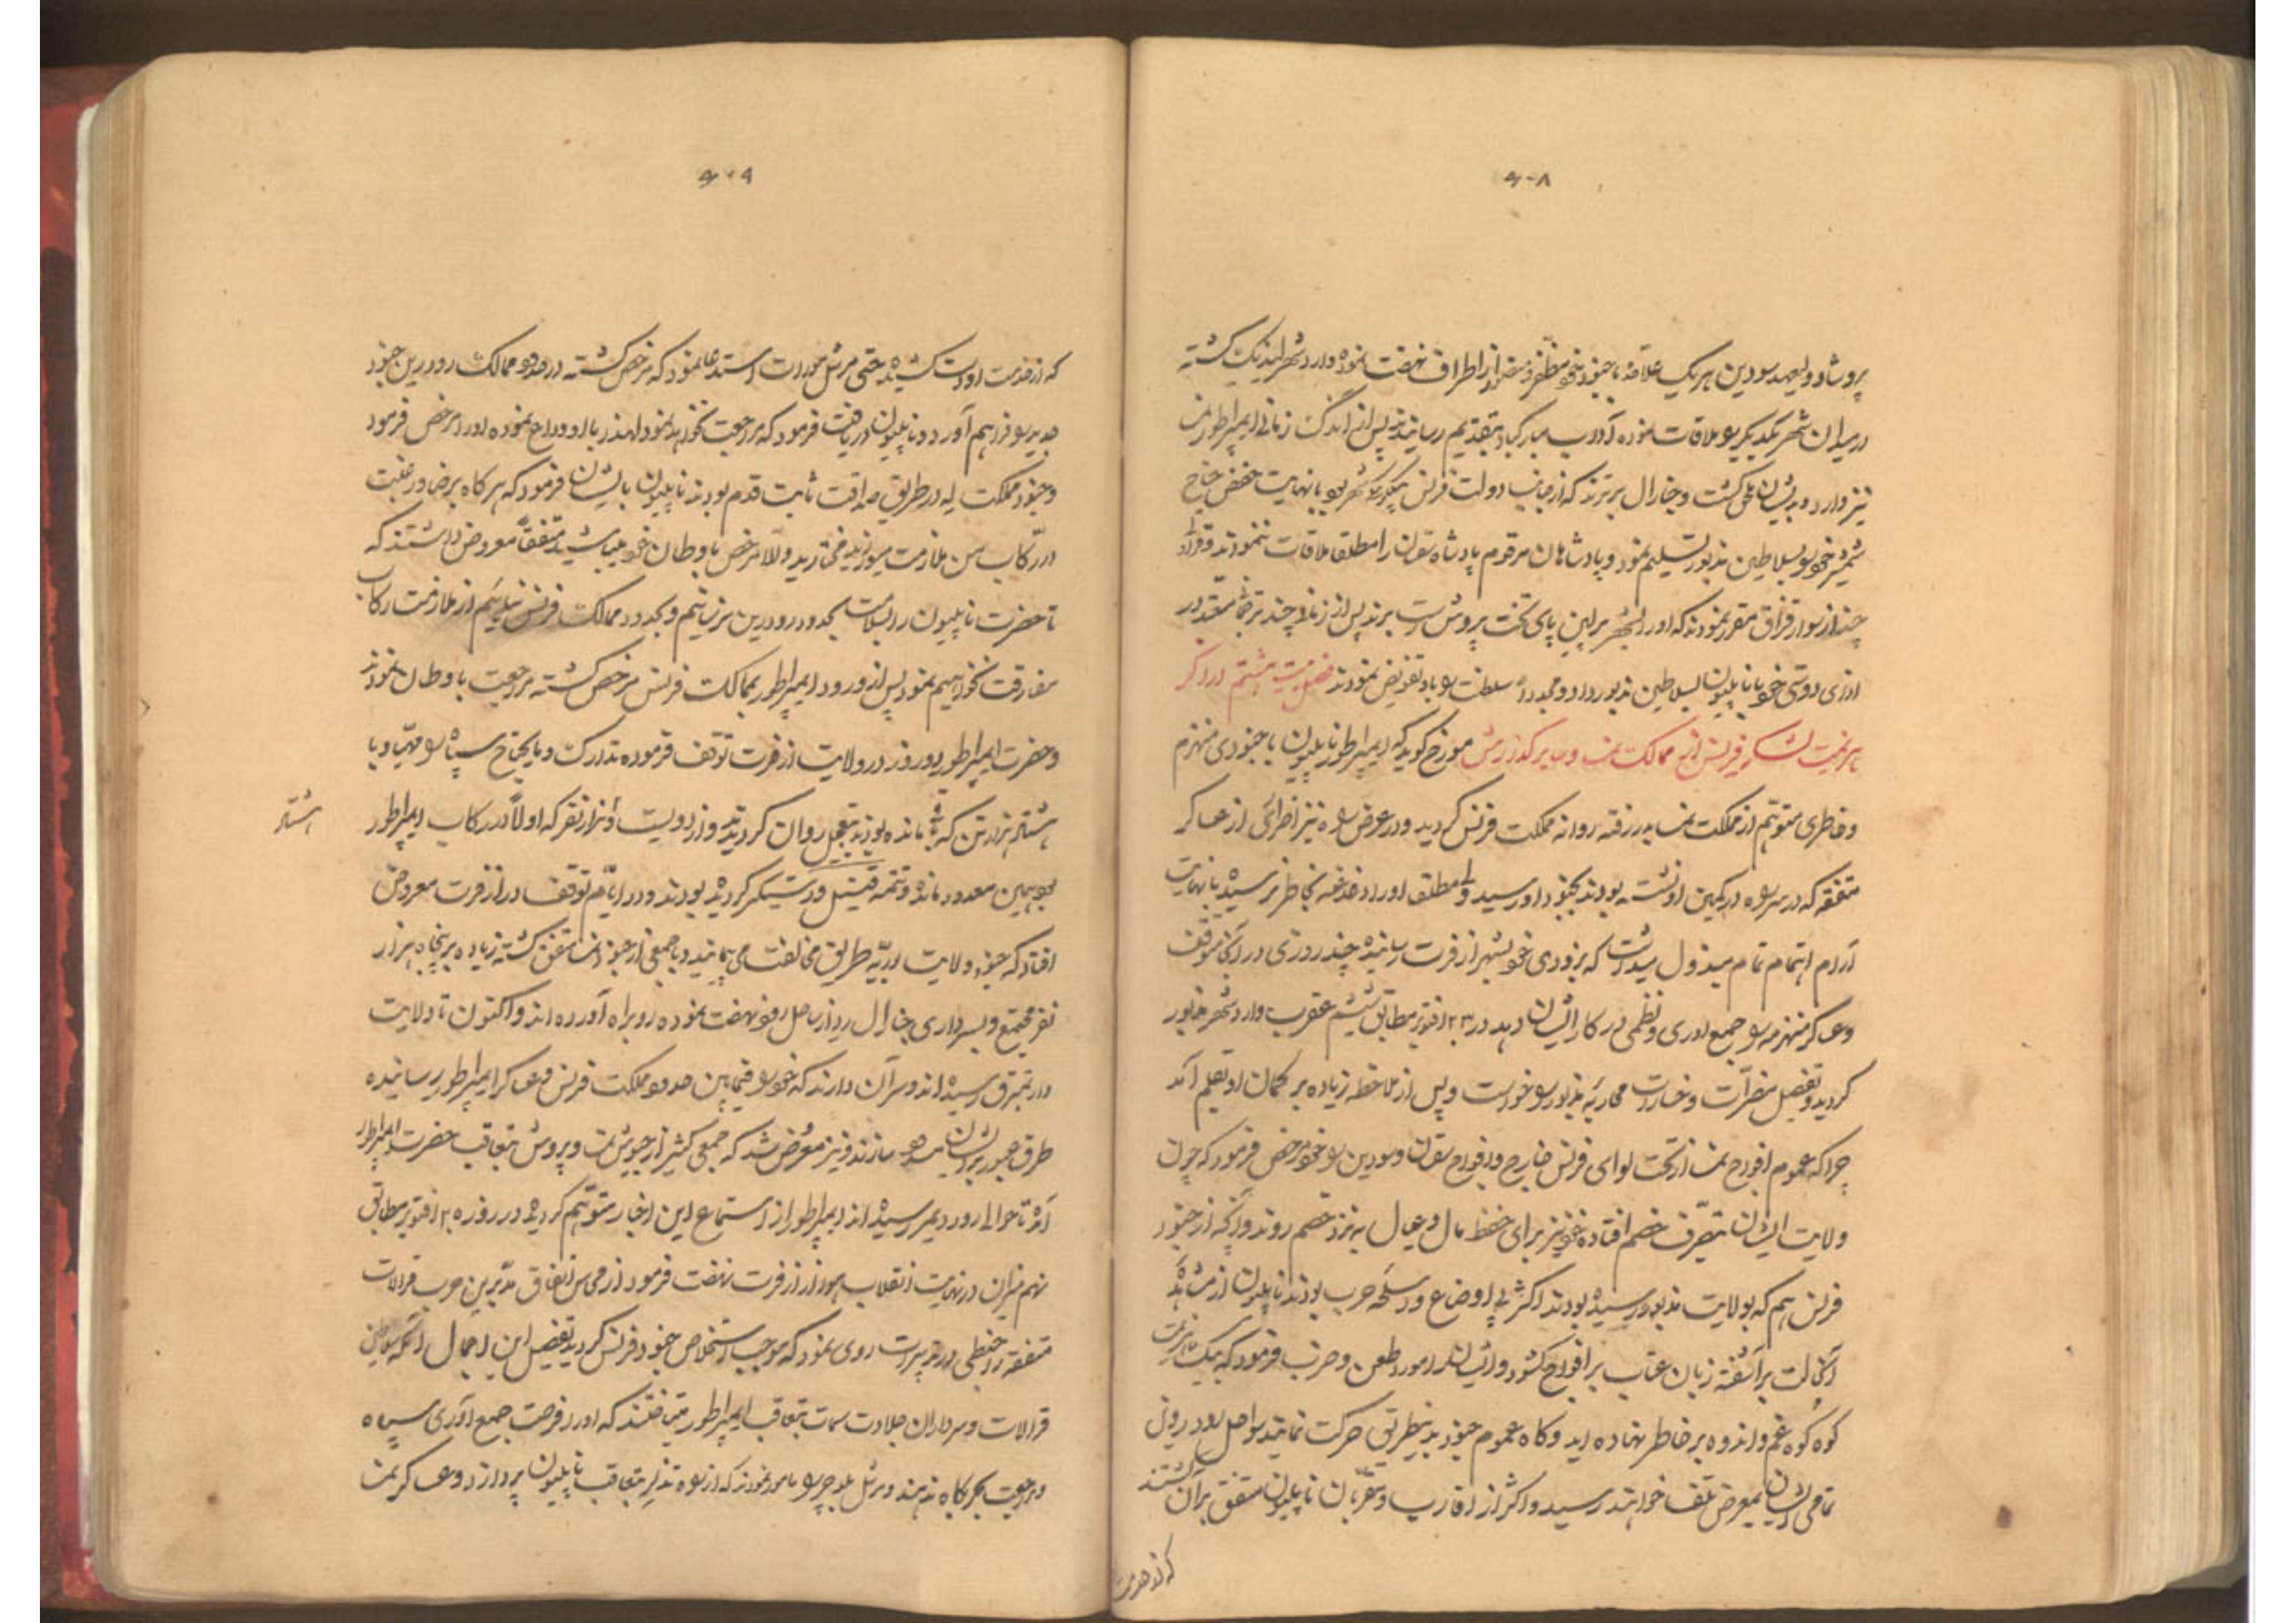 ۴۰۸
پروشا و ولیعهد سودین هر یک علاحده با جنود خود مظفر و منصور از اطراف نهضت نموده وارد شهر لیپزیک گشته
در میدان شهر یکدیگر را ملاقات نموده آداب مبارکباد بتقدیم رسانیدند پس از اندک زمانی ایمپراطور نمسه
نیز وارد و بدیشان ملحق گشت و جنارال برترند که از جانب دولت فرنس بیکلربیکی شهر بود با نهایت خفض جناح
شمشیر خود را بسلاطین مذبور تسلیم نمود و پادشاهان مرقوم پادشاه سقان را مطلقا ملاقات ننمودند و قرار
چند از سوار قزاق مقرر نمودند که او را بشهر برلین پای تخت پروش برند پس از زمانی چند ترضیه مقدر در
ازای دوستی خود با ناپلیون بسلاطین مذبور داد و مجددا سلطنت را باو تفویض نمودند فصل بیست و هشتم در ذکر
هزیمت لشکر فرنس از ممالک نمسه و سایر گذارش مورخ گوید که ایمپراطور ناپلیون با جنودی منهزم
و خاطری متوهم از مملکت نمسه بدر رفته روانه مملکت فرنس گردید و در عرض راه نیز اضرار از عساکر
متفقه که در سر راه در کمین او نشسته بودند بجنود او رسید ولی مطلقا او را دغدغه بخاطر نرسیده با نهایت
آرام اهتمام تمام مبذول میداشت که بزودی خود بشهر ارفرت رسانیده چند روزی در آنجا متوقف
و عساکر منهزمه را جمع آوری و نظمی در کار ایشان دهد در ۲۳ اکتوبر مطابق ششم عقرب وارد شهر مذبور
گردید و تفصیل مضرات و خسارات محاربه مذبور را خواست و پس از ملاحظه زیاده بر گمان او بقلم آمد
چرا که عموم افواج نمسه از تحت لوای فرنس خارج و افواج سقان و سودین را خود مرخص فرمود که چون
ولایت ایشان بتصرف خصم افتاده خود نیز برای حفظ مال و عیال به نزد خصم روند و آنچه از جنود
فرنس هم که بولایت مذبور رسیده بودند اکثر بی اوضاع و اسلحه حرب بودند ناپلیون از مشاهده
آنحالت برآشفته زبان عتاب بر افواج گشود و ایشان را مورد طعن و ضرب فرمود که بیک هزیمت
کوه کوه غم و اندوه بر خاطر نهاده اید و گاه عموم جنود بدینطریق حرکت نمایند بساحل رود رین
تمامی ایشان بمعرض تلف خواهند رسید و اکثر از اقارب و مقربان ناپلیون متفق بر آن گشتند
که از خدمت
۴۰۹
که از خدمت او دست کشیده حتی مرشل مورات استدعا نمود که مرخص گشته در حدود ممالک رود رین جنود
جدید را فراهم آورد و ناپلیون دریافت فرمود که مراجعت نخواهد نمود لهذا با او وداع نموده او را مرخص فرمود
و جنود مملکت له در طریق صداقت ثابت قدم بودند ناپلیون بایشان فرمود که هرگاه برضا و رغبت
در رکاب من ملازمت میورزید مختارید والا مرخص باوطان خود میباشید متفقا معروض داشتند که
تا حضرت ناپلیون را بسلامت بحدود رود رین نرسانیم و بحدود ممالک فرنس نیائیم از ملازمت رکاب
مفارقت نخواهیم نمود پس از ورود ایمپراطور بممالک فرنس مرخص گشته مراجعت باوطان نمودند
و حضرت ایمپراطور دو روز در ولایت ارفرت توقف فرموده تدارک و مایحتاج سپاه را مهیا و با
هشتاد هزار تن که باقی مانده بودند بتعجیل روان گردیدند و از دویست هزار نفر که اولا در رکاب ایمپراطور
هشتاد
بود همین معدود مانده و تتمه قتیل و دستگیر گردیده بودند و در ایام توقف در ارفرت معروض
افتاد که جنود ولایت باوریه طریق مخالفت می پیمایند و با جمعی از جنود نمسه متفق گشته زیاده بر پنجاه هزار
نفر مجتمع و بسرداری جنارال رید از ساحل رود نهضت نموده رو براه آورده اند و اکنون تا ولایت
رسیده اند و سر آن دارند که خود را فیمابین حدود مملکت فرنس و عساکر ایمپراطور رسانیده
طرق عبور بر ایشان مسدود سازند و نیز معروض شد که جمعی کثیر از جیوش نمسه و پروش بتعاقب حضرت ایمپراطور
آمده تا حوالی رود رسیده اند ایمپراطور از استماع این اخبار متوهم گردیده در روز ۲۵ اکتوبر مطابق
نهم میزان در نهایت انقلاب هوا از ارفرت نهضت فرمود از محاسن اتفاق مدبرین حرب قرالات
متفقه را خبطی در تدبیرات روی نمود که موجب استخلاص جنود فرنس گردید تفصیل این اجمال آنکه سلاطین
قرالات و سرداران جلادت سمات بتعاقب ایمپراطور میتاختند که او را فرصت جمع آوری سپاه
و مراجعت بحربگاه ندهند و مرشل بلوچر را مامور نمودند که از راه بتعاقب ناپلیون پردازد و عساکر نمسه